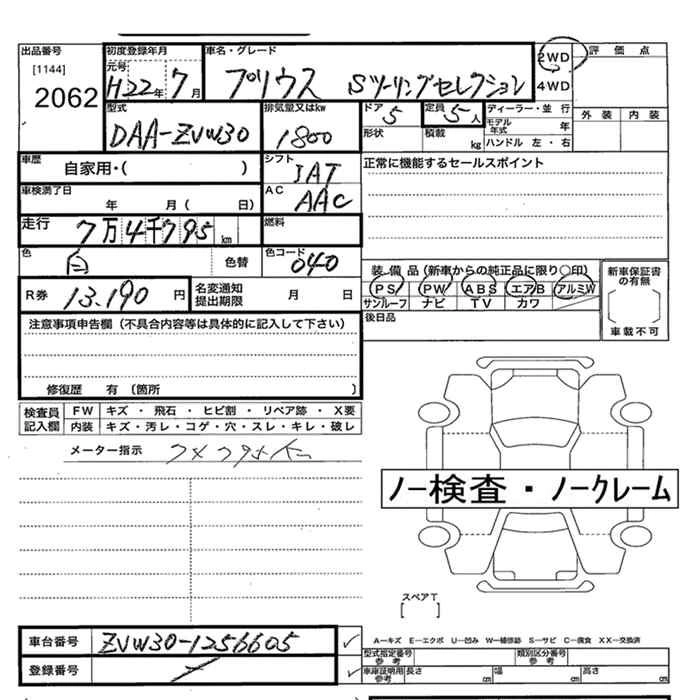 出品番号 初度登録年月 車名・グレード 2WD 評価点
[1144] 元号
2062 H22年 7月 プリウス Sツーリングセレクション 4WD
型式 排気量又はkw ドア 定員 ディーラー・並行 外装 内装
DAA-ZVW30 1800 5 5人 モデル年式 年
形状 積載 kg ハンドル 左・右
車歴 自家用・( ) シフト IAT 正常に機能するセールスポイント
車検満了日 年 月( 日) AC AAC
走行 7万4千795km 燃料
色 白 色替 色コード 040
装備品(新車からの純正品に限り○印) 新車保証書の有無
R券 13.190円 名変通知提出期限 月 日 PS PW ABS エアB アルミW
サンルーフ ナビ TV カワ
注意事項申告欄(不具合内容等は具体的に記入して下さい) 後日品 車載不可
修復歴 有(箇所 )
検査員記入欄 FW キズ・飛石・ヒビ割・リペア跡・X要
内装 キズ・汚レ・コゲ・穴・スレ・キレ・破レ
メーター指示
ノー検査・ノークレーム
スペアT
[ ]
車台番号 ZVW30-1256605 A-キズ E-エクボ U-凹み W-補修跡 S-サビ C-腐食 XX-交換済
型式指定番号参考 類別区分番号参考
登録番号 車庫証明用参考 長さ cm 幅 cm 高さ cm